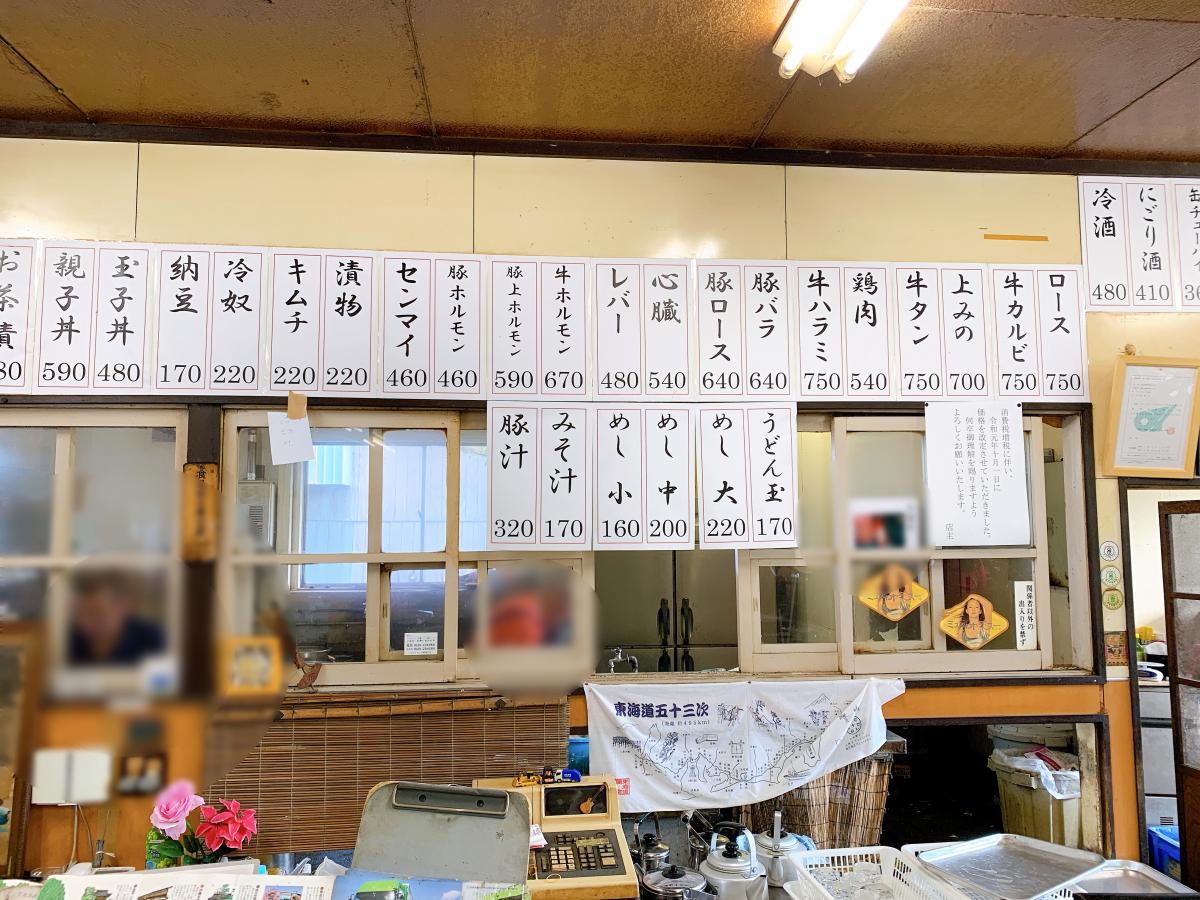 冷酒
480
にごり酒
410
ロース
750
牛カルビ
750
上みの
700
牛タン
750
鶏肉
540
牛ハラミ
750
豚バラ
640
豚ロース
640
心臓
540
レバー
480
牛ホルモン
670
豚上ホルモン
590
豚ホルモン
460
センマイ
460
漬物
220
キムチ
220
冷奴
220
納豆
170
玉子丼
480
親子丼
590
お茶漬
うどん玉
170
めし 大
220
めし 中
200
めし 小
160
みそ汁
170
豚汁
320
消費税増税に伴い、
令和元年十月一日に
価格を改定させていただきました。
何卒御理解を賜りますよう
よろしくお願いいたします。
店主
関係者以外の
出入りを禁ず
東海道五十三次